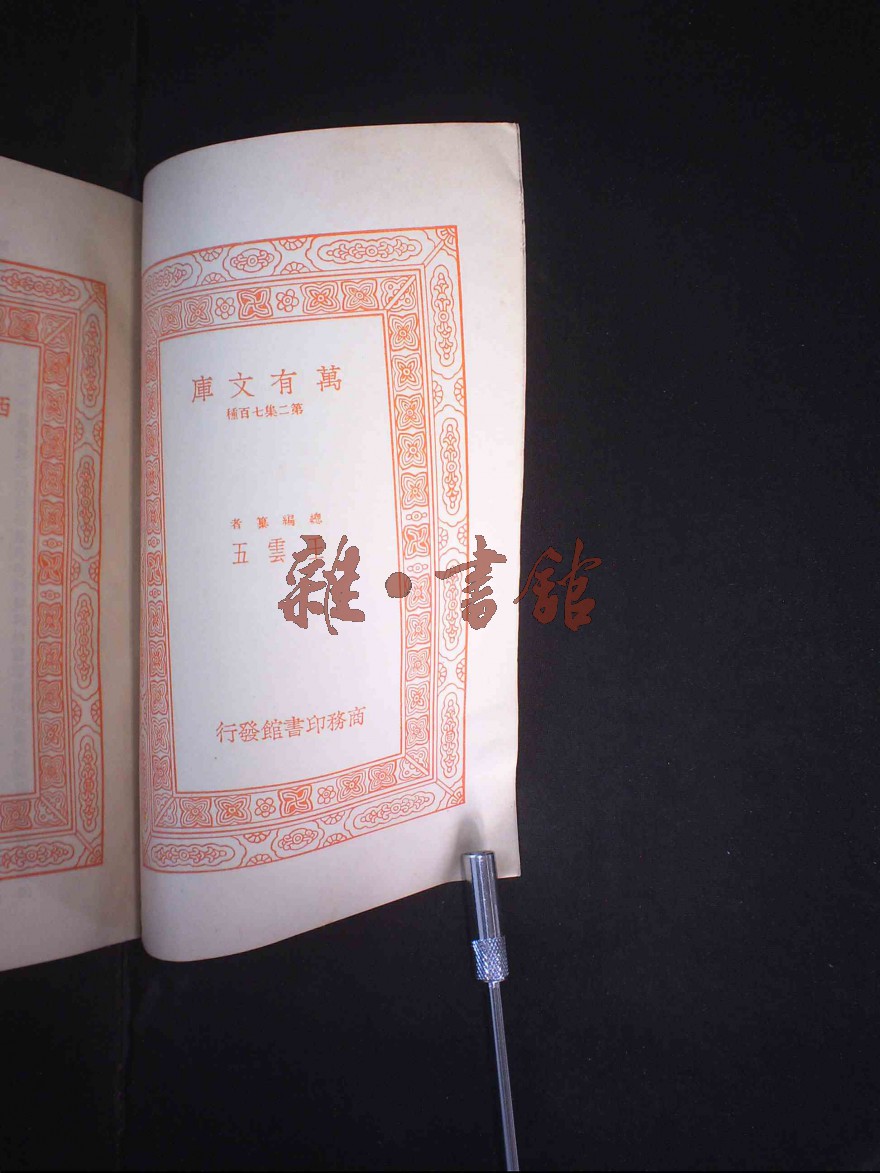 萬有文庫
第二集七百種
總編纂者
王雲五
商務印書館發行
西
雜•書館